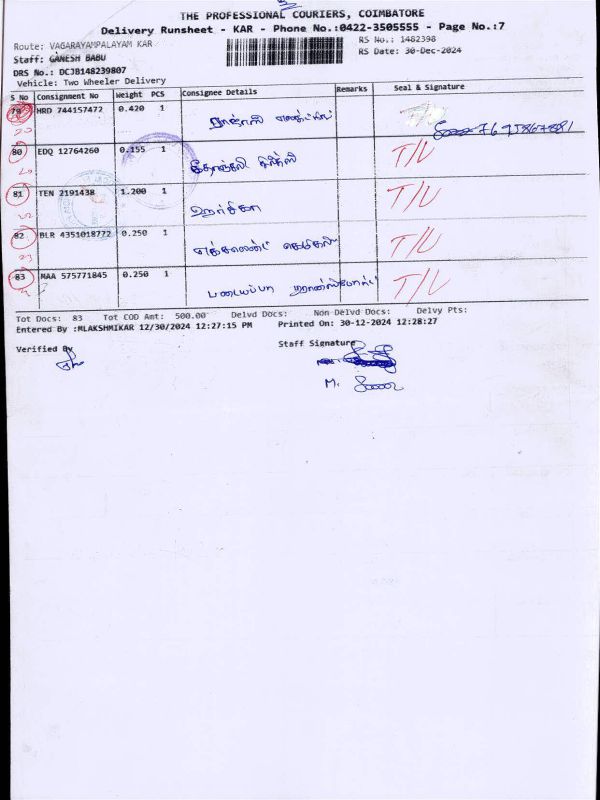 THE PROFESSIONAL COURIERS, COIMBATORE
Delivery Runsheet - KAR - Phone No.:0422-3505555 - Page No.:7
Route: VAGARAYAMPALAYAM KAR
RS No.: 1482398
Staff: GANESH BABU
RS Date: 30-Dec-2024
DRS No.: DCJB148239807
Vehicle: Two Wheeler Delivery
S No Consignment No Weight PCS Consignee Details Remarks Seal & Signature
79 HRD 744157472 0.420 1 T/U
80 EDQ 12764260 0.155 1 T/U
81 TEN 2191438 1.200 1 T/U
82 BLR 4351018772 0.250 1 T/U
83 MAA 575771845 0.250 1 படையப்பா T/U
Tot Docs: 83 Tot COD Amt: 500.00 Delvd Docs: Non Delvd Docs: Delvy Pts:
Entered By :MLAKSHMIKAR 12/30/2024 12:27:15 PM Printed On: 30-12-2024 12:28:27
Verified By Staff Signature
M.